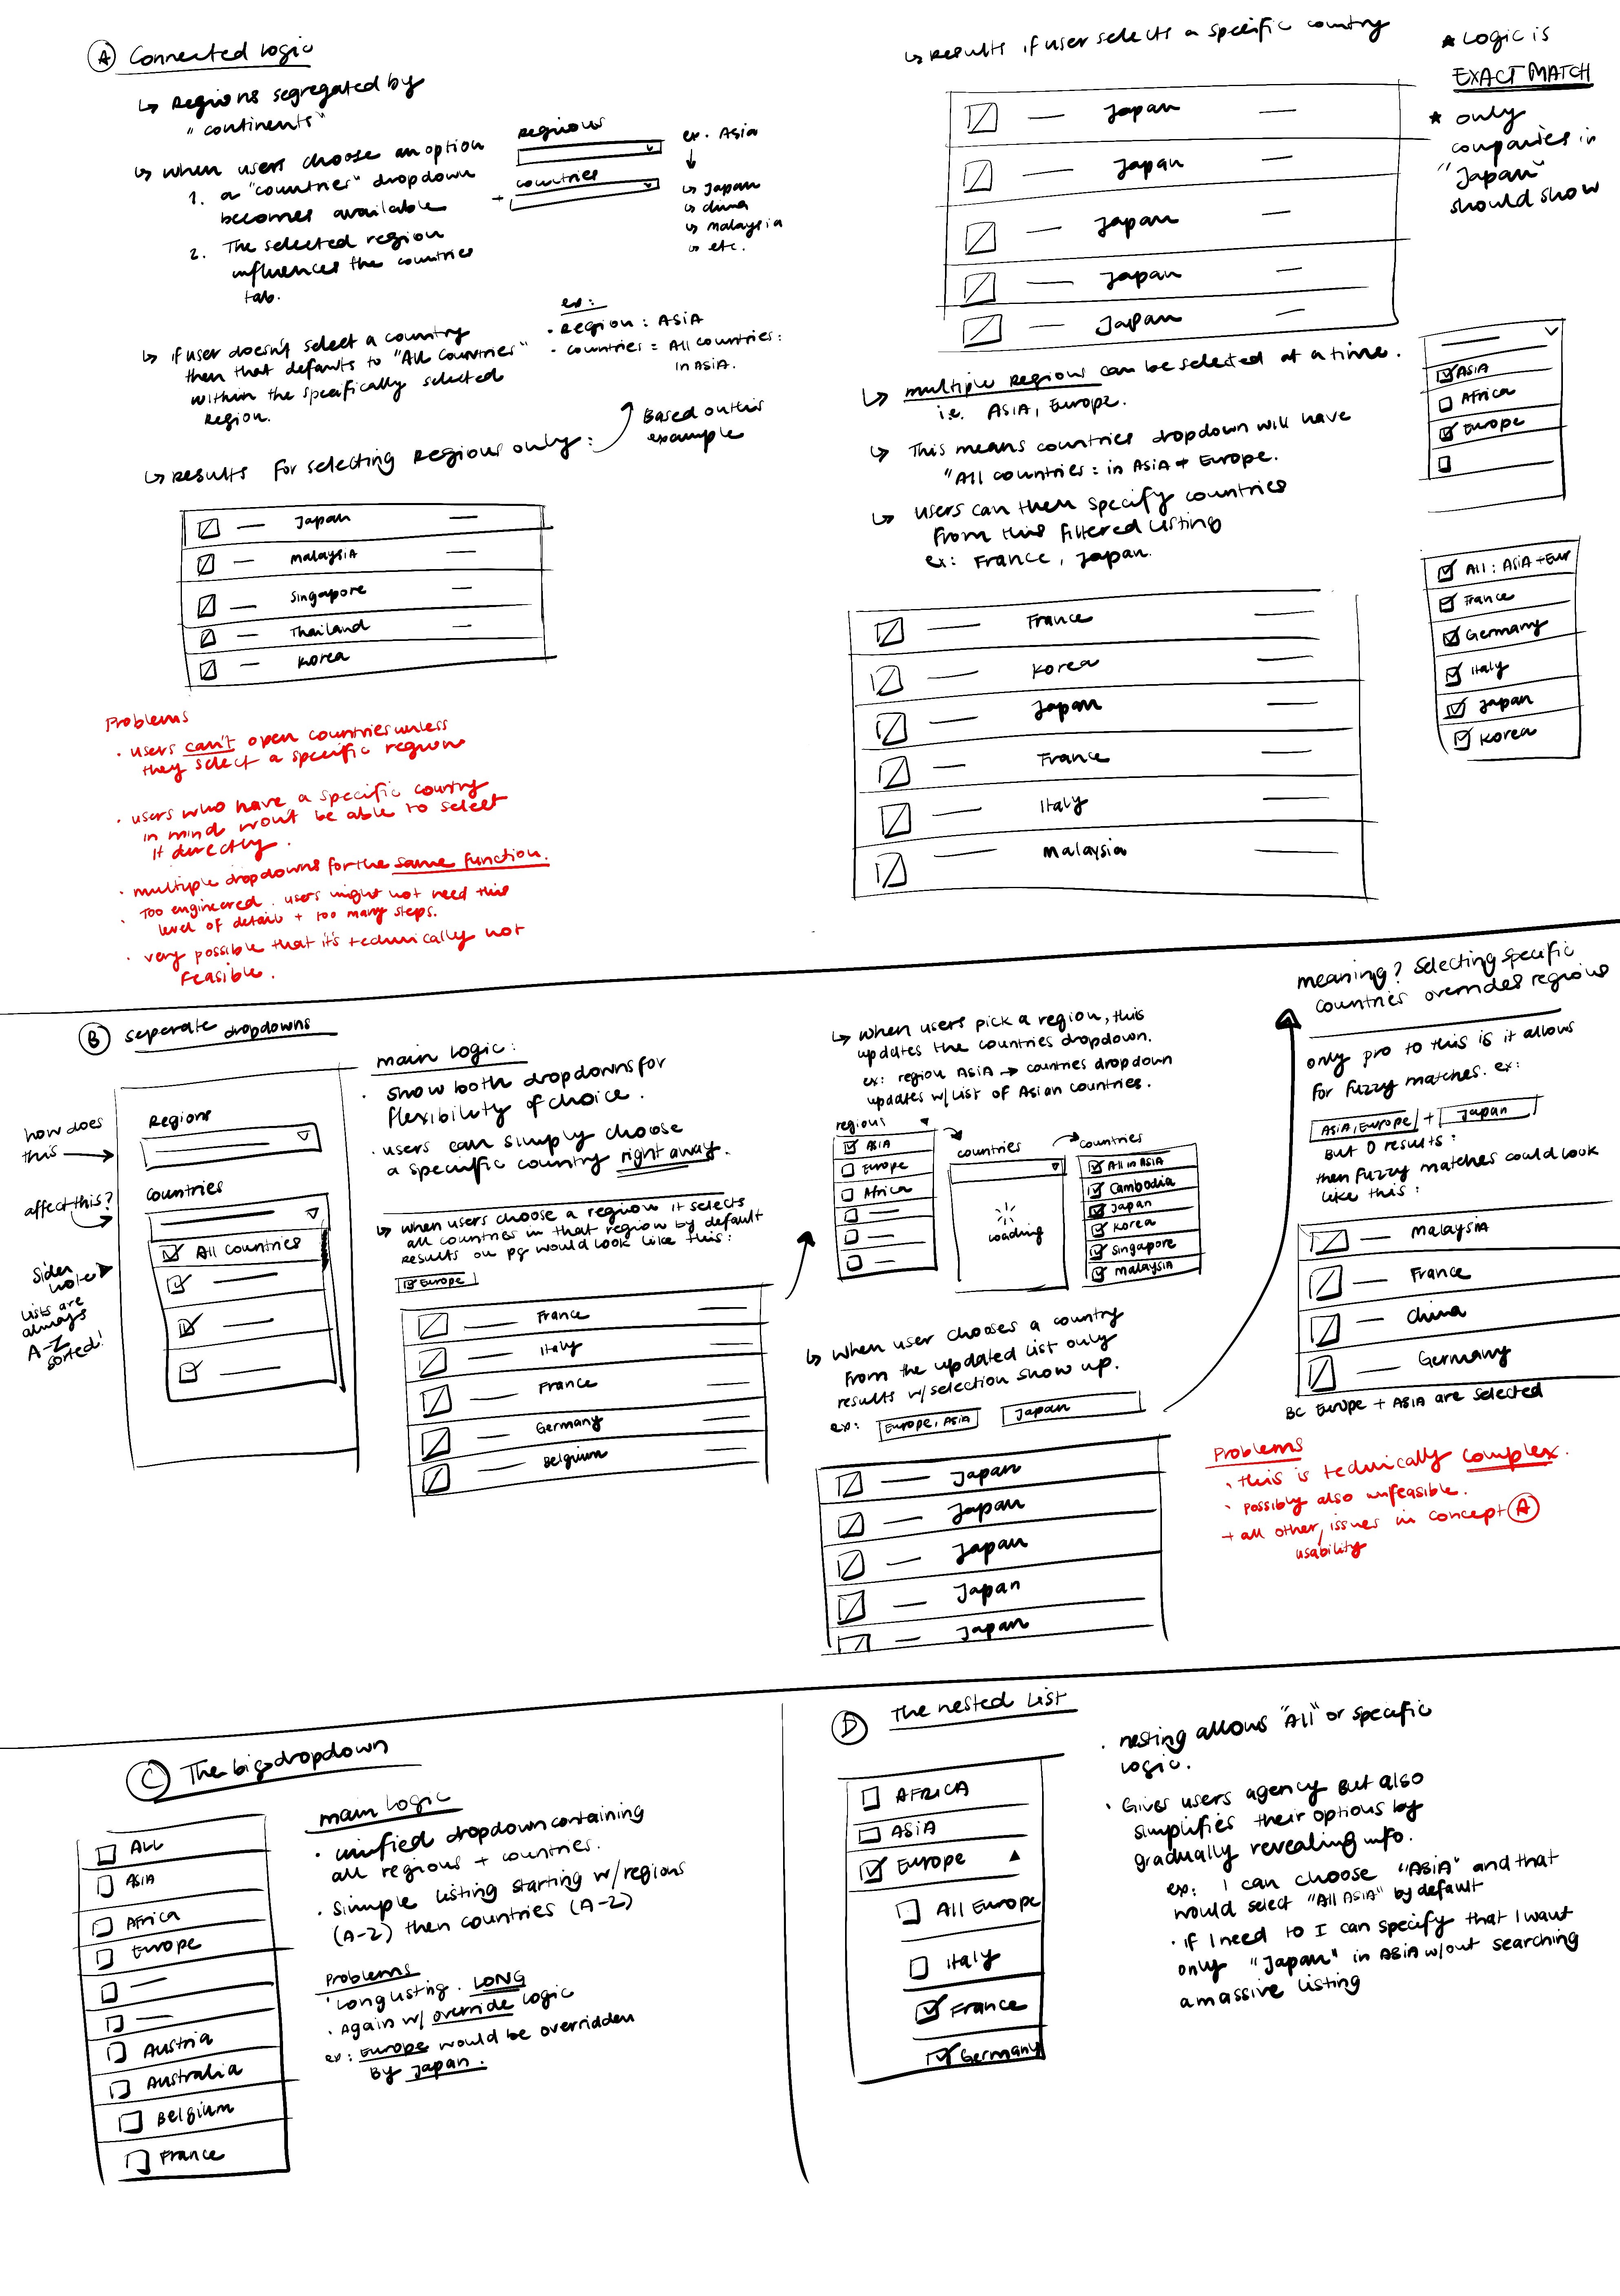 A Connected logic
↳ Regions segregated by
"continents"
↳ when users choose an option
1. a "countries" dropdown
becomes available
2. The selected region
influences the countries
tab.
Regions
+ countries
ex. Asia
↓
↳ Japan
↳ china
↳ malaysia
↳ etc.
↳ if user doesn't select a country
then that defaults to "All countries"
within the specifically selected
region.
ex:
• Region: ASIA
• countries = All countries:
in ASIA.
↳ Results for selecting Regions only:
Based on this
example
Japan
malaysia
Singapore
Thailand
Korea
Problems
• users can't open countries unless
they select a specific region
• users who have a specific country
in mind won't be able to select
it directly.
• multiple dropdowns for the same function.
• Too engineered. users might not need this
level of detail + too many steps.
• very possible that it's technically not
feasible.
↳ Results if user selects a specific country
★ Logic is
EXACT MATCH
★ only
companies in
"Japan"
should show
Japan
Japan
Japan
Japan
Japan
↳ multiple regions can be selected at a time.
i.e. ASIA, Europe.
↳ This means countries dropdown will have
"All countries: in ASIA + Europe.
↳ users can then specify countries
from this filtered listing
ex: France, Japan.
ASIA
Africa
Europe
All: ASIA + Eur
France
Germany
Italy
Japan
Korea
France
Korea
Japan
France
Italy
malaysia
B seperate dropdowns
how does
this →
affect this?
Regions
countries
All countries
lists are
always
A-Z
sorted!
main logic:
• show both dropdowns for
flexibility of choice.
• users can simply choose
a specific country right away.
↳ when users choose a region it selects
all countries in that region by default
results on pg would look like this:
Europe
France
Italy
France
Germany
Belgium
↳ when users pick a region, this
updates the countries dropdown.
ex: region ASIA → countries dropdown
updates w/ list of Asian countries.
regions
ASIA
Europe
Africa
countries
loading
countries
All in ASIA
Cambodia
Japan
Korea
Singapore
malaysia
↳ when user chooses a country
from the updated list only
results w/ selection show up.
ex: Europe, ASIA Japan
Japan
Japan
Japan
Japan
Japan
meaning? Selecting specific
countries overrides regions
only pro to this is it allows
for fuzzy matches. ex:
ASIA, Europe + Japan
But 0 results:
then fuzzy matches could look
like this:
malaysia
France
china
Germany
BC Europe + ASIA are selected
Problems
• this is technically complex.
• possibly also unfeasible.
+ all other issues in concept A
usability
C The big dropdown
ALL
ASIA
Africa
Europe
Austria
Australia
Belgium
France
main logic
• unified dropdown containing
all regions + countries.
• simple listing starting w/ regions
(A-Z) then countries (A-Z)
Problems
• Long listing. LONG
• Again w/ override logic
ex: Europe would be overridden
By Japan.
D The nested list
AFRICA
ASIA
Europe
All Europe
Italy
France
Germany
• nesting allows "All" or specific
logic.
• Gives users agency but also
simplifies their options by
gradually revealing info.
ex: I can choose "ASIA" and that
would select "All ASIA" by default
• if I need to I can specify that I want
only "Japan" in ASIA w/out searching
a massive listing